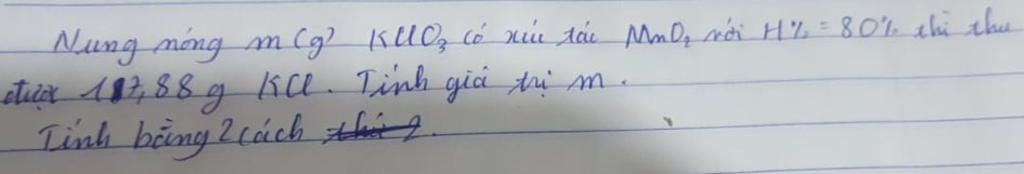 Nung nóng m (g) KClO₃ có xúc tác MnO₂ với H% = 80% thì thu
được 117,88 g KCl. Tính giá trị m.
Tính bằng 2 cách